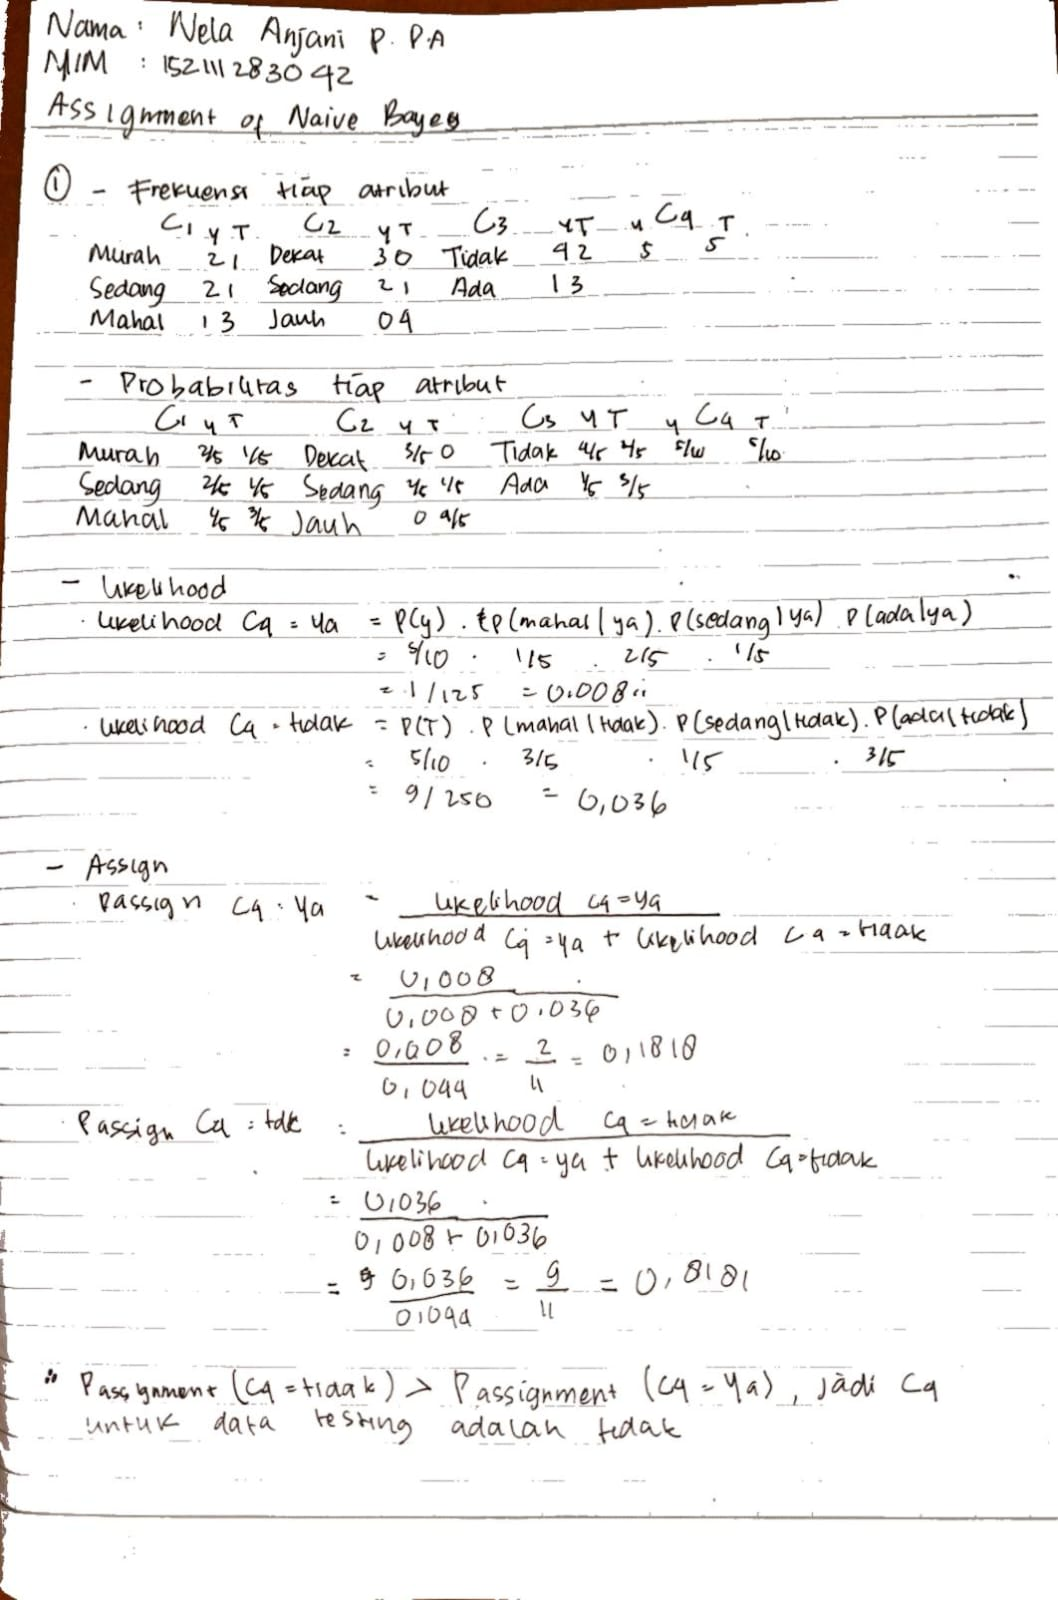 Nama : Nela Anjani P. P.A
NIM : 152111283042
Assignment of Naive Bayes
① - Frekuensi tiap atribut
C1 y T C2 y T C3 y T y C4 T
Murah 2 1 Dekat 3 0 Tidak 4 2 5 5
Sedang 2 1 Sedang 2 1 Ada 1 3
Mahal 1 3 Jauh 0 4
- Probabilitas tiap atribut
C1 y T C2 y T C3 y T y C4 T
Murah 2/5 1/5 Dekat 3/5 0 Tidak 4/5 2/5 5/10 5/10
Sedang 2/5 1/5 Sedang 2/5 1/5 Ada 1/5 3/5
Mahal 1/5 3/5 Jauh 0 4/5
- Likelihood
· Likelihood C4 = Ya = P(y) . P(mahal | ya). P(sedang | ya) P(ada | ya)
= 5/10 . 1/5 . 2/5 . 1/5
= 1/125 = 0.008
· Likelihood C4 = tidak = P(T) . P(mahal | tidak). P(sedang | tidak). P(ada | tidak)
= 5/10 . 3/5 . 1/5 . 3/5
= 9/250 = 0,036
- Assign
· Passign C4 = Ya = Likelihood C4 = Ya
Likelihood C4 = ya + Likelihood C4 = tidak
= 0,008
0,008 + 0,036
= 0,008 = 2 = 0,1818
0,044 11
· Passign C4 = tdk = Likelihood C4 = tidak
Likelihood C4 = ya + Likelihood C4 = tidak
= 0,036
0,008 + 0,036
= 0,036 = 9 = 0,8181
0,044 11
∴ Passignment (C4 = tidak) > Passignment (C4 = Ya), jadi C4
untuk data testing adalah tidak